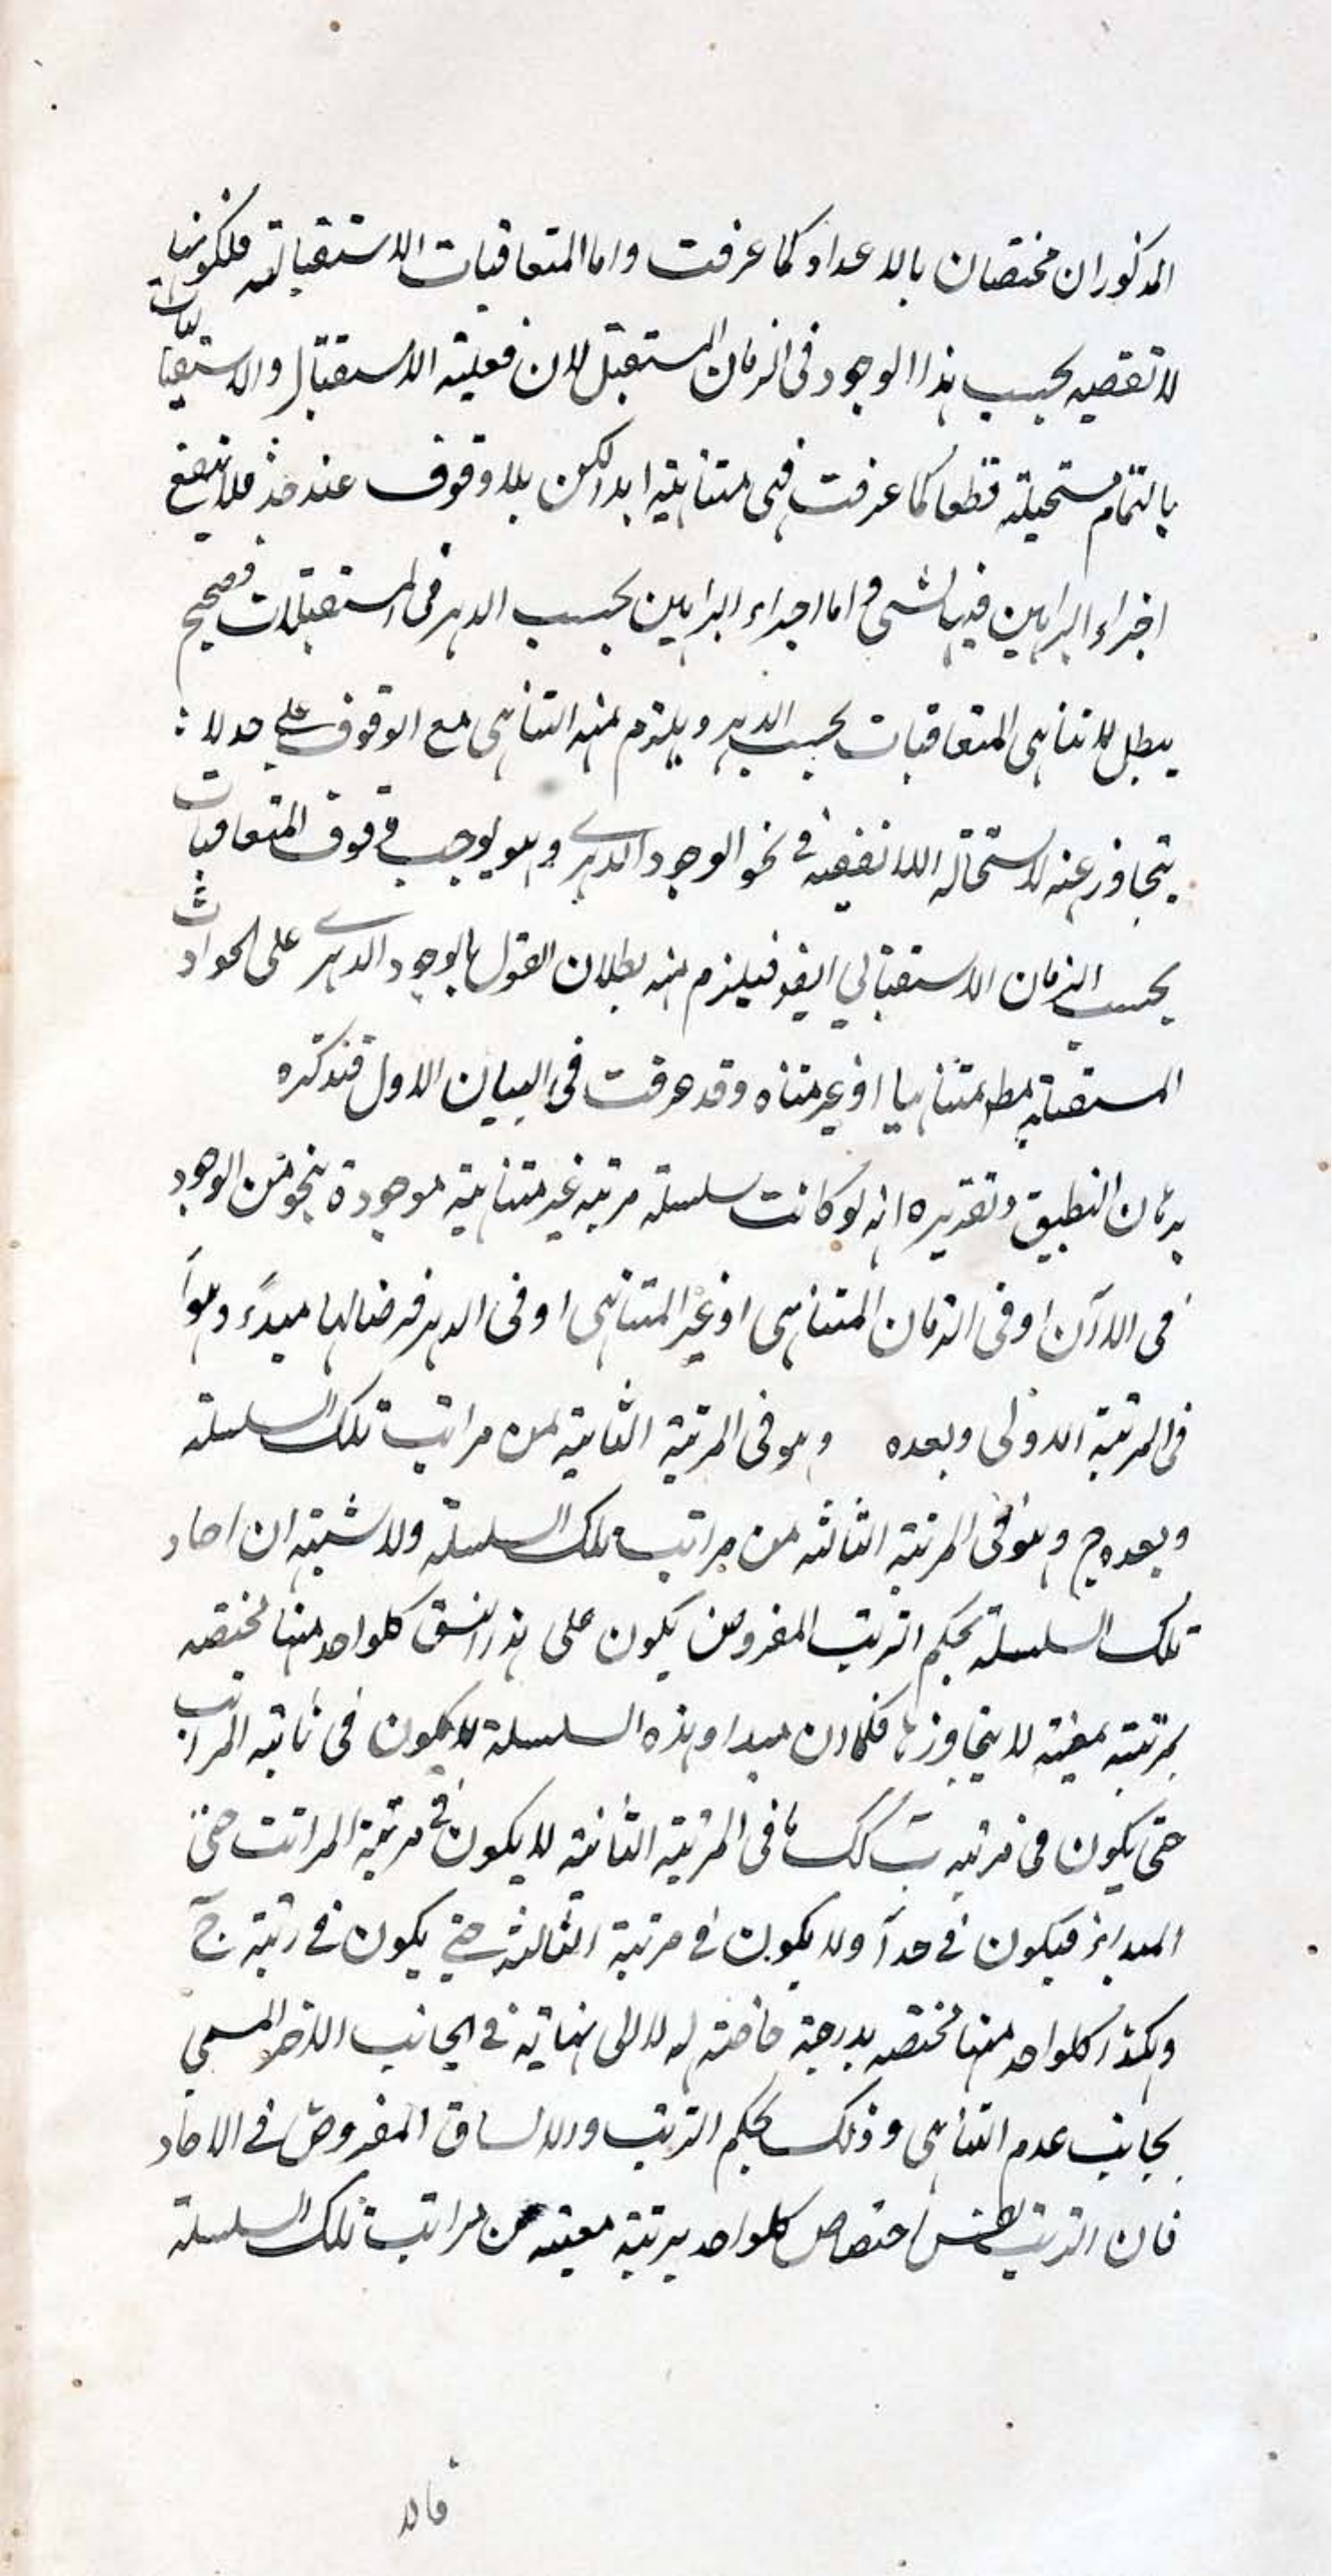 المذكوران مختصان بالاعداد كما عرفت واما المتعاقبات الاستقبالية فلكونها
لا تقضيه بحسب هذا الوجود فى الزمان المستقبل لان فعلية الاستقبال والاستقباليات
بالتمام مستحيلة قطعا كما عرفت فهى متناهية ابدا لكن بلا وقوف عند حد فلا ينفع
اجراء البراهين فيها لشى واما اجراء البراهين بحسب الدهر فى المستقبلات فصحيح
يبطل لا تناهى المتعاقبات بحسب الدهر ويلزم منه التناهى مع الوقوف على حد لا
يتجاوز عنه لاستحالة اللا تقفيه فى نحو الوجود الدهرى وهو يوجب وقوف المتعاقبات
بحسب الزمان الاستقبالي ايضا فيلزم منه بطلان القول بالوجود الدهرى على الحوادث
المستقبلة مط متناهيا او غير متناه وقد عرفت فى البيان الاول فتذكره
برهان التطبيق وتقريره انه لو كانت سلسلة مرتبة غير متناهية موجودة بنحو من الوجود
فى الآن او فى الزمان المتناهى او غير المتناهى او فى الدهر فرضنا لها مبدء وهو آ
فى المرتبة الاولى وبعده وهو فى المرتبة الثانية من مراتب تلك السلسلة
وبعده ج وهو فى المرتبة الثالثة من مراتب تلك السلسلة ولا شبهة ان احاد
تلك السلسلة بحكم الترتيب المفروض يكون على هذا النسق كلواحد منها مختصه
بمرتبة معينة لا يتجاوزها فكما ان مبداء هذه السلسلة لا يكون فى ثانية المراتب
حتى يكون فى مرتبة ب كك ما فى المرتبة الثانية لا يكون فى مرتبة المراتب حتى
المبدا فيكون فى حد آ ولا يكون فى مرتبة الثالثة حتى يكون فى رتبة ج
وهكذا كلواحد منها مختصه بدرجة خاصة له لا الى نهاية فى الجانب الآخر المسمى
بجانب عدم التناهى وذلك بحكم الترتيب والاتساق المفروض فى الاحاد
فان الترتيب اختصاص كلواحد بمرتبة معينة من مراتب تلك السلسلة
فالا